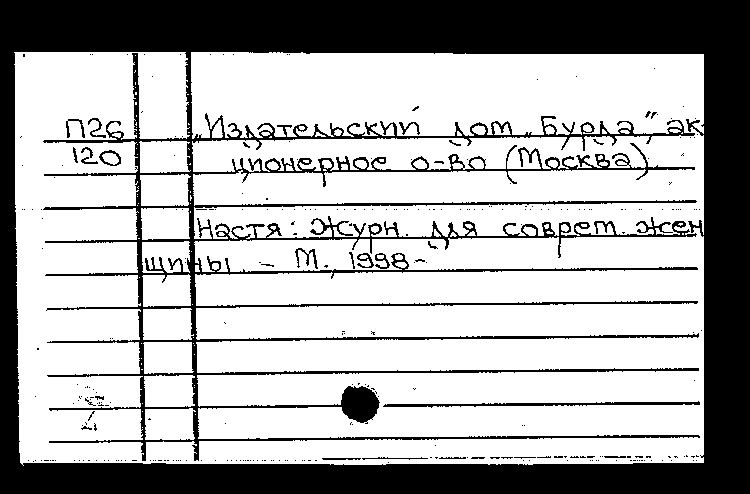 П26
120
„Издательский дом „Бурда”, ак-
ционерное о-во (Москва).
Настя: Журн. для соврем. жен
щины. – М., 1998-